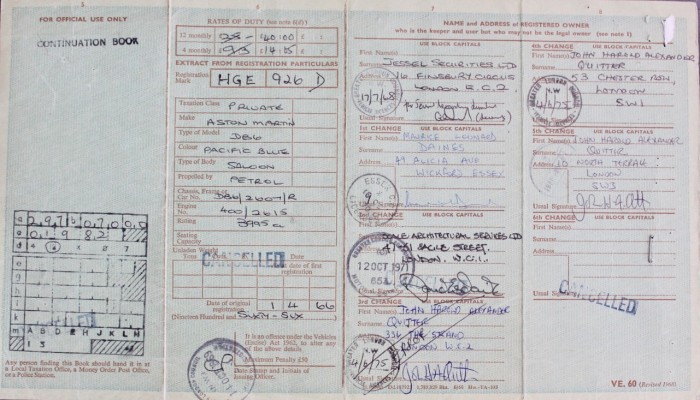 FOR OFFICIAL USE ONLY
CONTINUATION BOOK
a 2 9 7 0 7 0 0
0 1 9 8 2
m A B D E F G H J K L N
1 3
Any person finding this Book should hand it at
a Local Taxation Office, a Money Order Post Office,
or a Police Station.
RATES OF DUTY (see note 8)
12 monthly
4 monthly
EXTRACT FROM REGISTRATION PARTICULARS
Registration
Mark HGE 926 D
Taxation Class PRIVATE
Make ASTON MARTIN
Type of Model DB6
Colour PACIFIC BLUE
Type of Body SALOON
Propelled by PETROL
Chassis, Frame or
Car No. DB6/2607/R
Engine
No. 400/2615
Seating
Capacity
Unladen Weight
CANCELLED
date of first
registration
Date of original
registration 1 4 66
(Nineteen Hundred and SIXTY-SIX
It is an offence under the Vehicles
(Excise) Act 1962, to alter any
of the above details.
Maximum Penalty £50
Date-Stamp and Initials of
Issuing Officer.
NAME and ADDRESS of REGISTERED OWNER
who is the keeper and user but who may not be the legal owner (see note 1)
First Name(s) USE BLOCK CAPITALS
JESSEL SECURITIES LTD
Surname
Address 16 FINSBURY CIRCUS
LONDON E.C.2.
17/7/68
Usual Signature
1st CHANGE USE BLOCK CAPITALS
First Name(s) MAURICE LEONARD
Surname BAINES
Address 49 ALICIA AVE
WICKFORD ESSEX
ESSEX
Usual Signature
2nd CHANGE USE BLOCK CAPITALS
SCALE ARCHITECTURAL SERVICES LTD
STREET.
LONDON. W.C.1.
12 OCT 1971
Usual Signature
3rd CHANGE USE BLOCK CAPITALS
First Name(s) JOHN HAROLD ALEXANDER
Surname QUITTER
Address THE STRAND
LONDON W.C.2
Usual Signature
4th CHANGE USE BLOCK CAPITALS
First Name(s) JOHN HAROLD ALEXANDER
Surname QUITTER
Address 53 CHESTER ROW,
LONDON
SW1
GREATER LONDON
4/4/75
Usual Signature
5th CHANGE USE BLOCK CAPITALS
First Name(s) JOHN HAROLD ALEXANDER
Surname QUITTER
Address 10 NORTH TERRACE
LONDON
SW3
Usual Signature
6th CHANGE USE BLOCK CAPITALS
First Name(s)
Surname
Address
Usual Signature
CANCELLED
VE. 60 (Revised 1968)